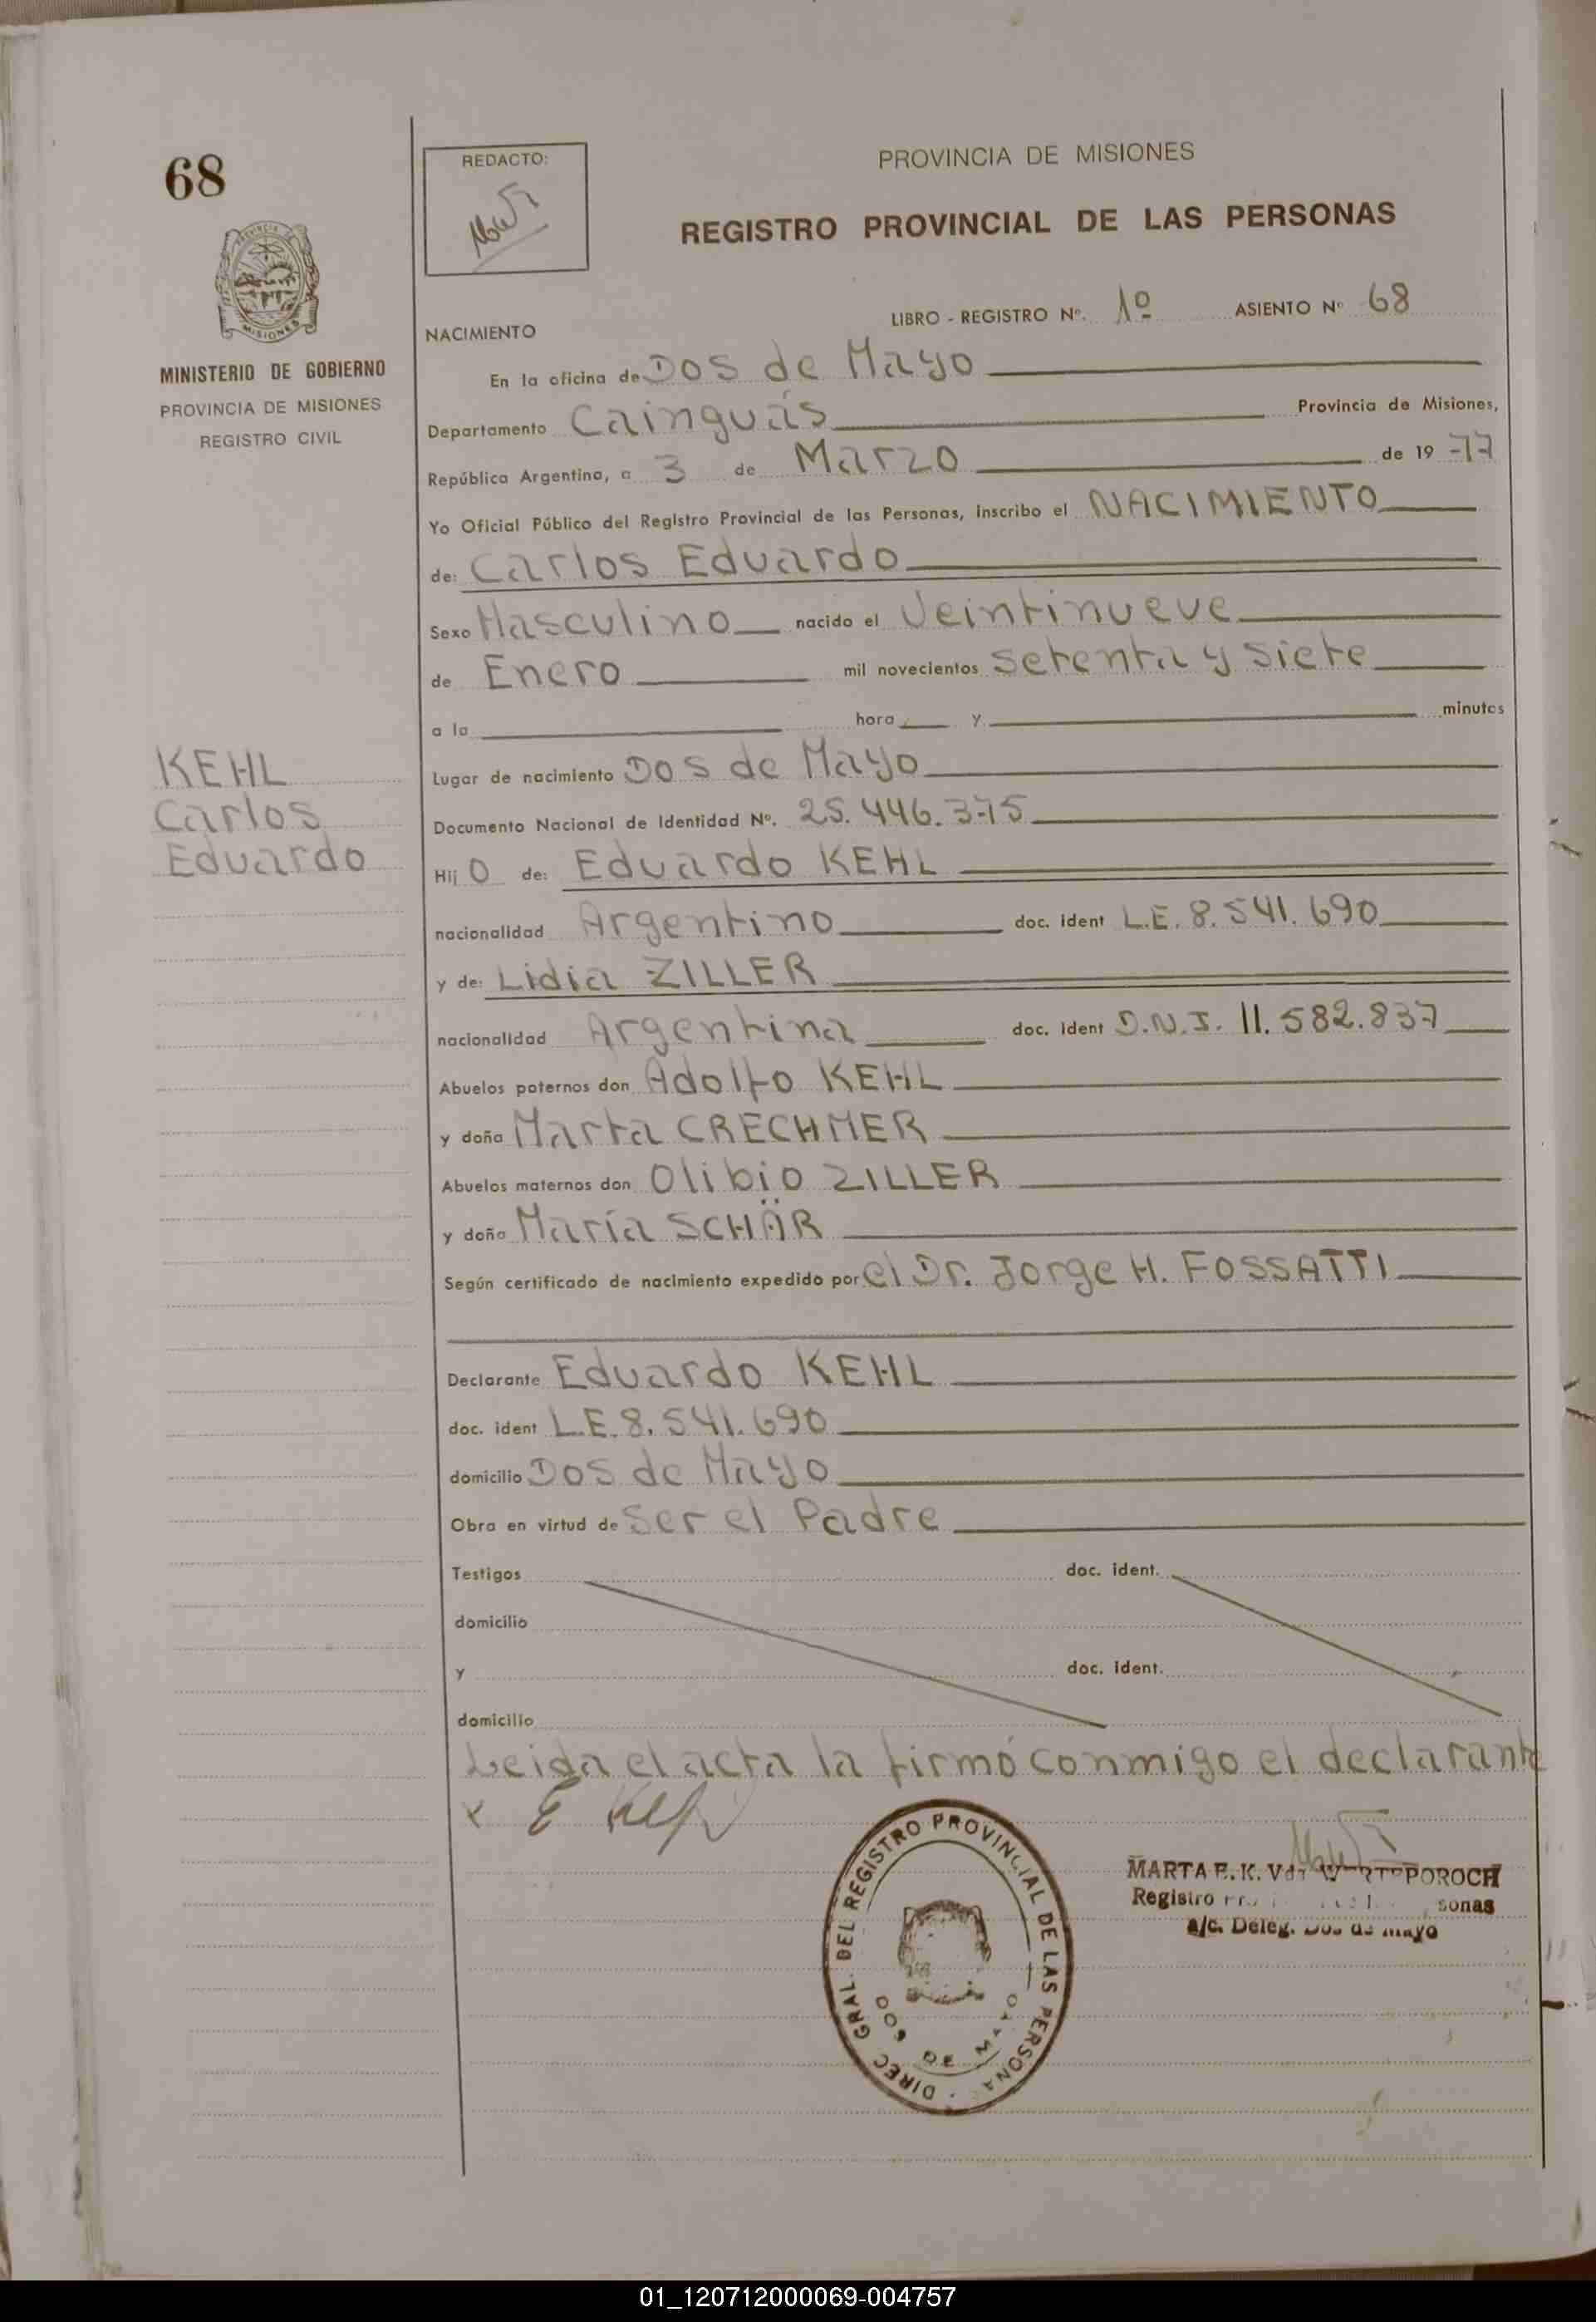 68
REDACTO:
PROVINCIA DE MISIONES
REGISTRO PROVINCIAL DE LAS PERSONAS
MISIONES
MINISTERIO DE GOBIERNO
PROVINCIA DE MISIONES
REGISTRO CIVIL
LIBRO - REGISTRO Nº. 1º ASIENTO Nº 68
NACIMIENTO
En la oficina de Dos de Mayo
Departamento Cainguás Provincia de Misiones,
República Argentina, a 3 de Marzo de 19 77
Yo Oficial Público del Registro Provincial de las Personas, inscribo el NACIMIENTO
de: Carlos Eduardo
Sexo Masculino nacido el Veintinueve
de Enero mil novecientos setenta y siete
a la hora y minutos
KEHL
Carlos
Eduardo
Lugar de nacimiento Dos de Mayo
Documento Nacional de Identidad Nº. 25.446.375
Hij o de: Eduardo KEHL
nacionalidad Argentino doc. ident L.E. 8.541.690
y de: Lidia ZILLER
nacionalidad Argentina doc. ident D.N.I. 11.582.837
Abuelos paternos don Adolfo KEHL
y doña Marta CRECHMER
Abuelos maternos don Olibio ZILLER
y doña María SCHÄR
Según certificado de nacimiento expedido por el Dr. Jorge H. FOSSATTI
Declarante Eduardo KEHL
doc. ident L.E. 8.541.690
domicilio Dos de Mayo
Obra en virtud de ser el Padre
Testigos doc. ident.
domicilio
y doc. ident.
domicilio
Leida el acta la firmó conmigo el declarante
x E Kehl
DIREC GRAL. DEL REGISTRO PROVINCIAL DE LAS PERSONAS
DOS DE MAYO
MARTA E. K. Vda
POROCH
Registro sonas
a/c. Deleg. Dos de Mayo
01_120712000069-004757